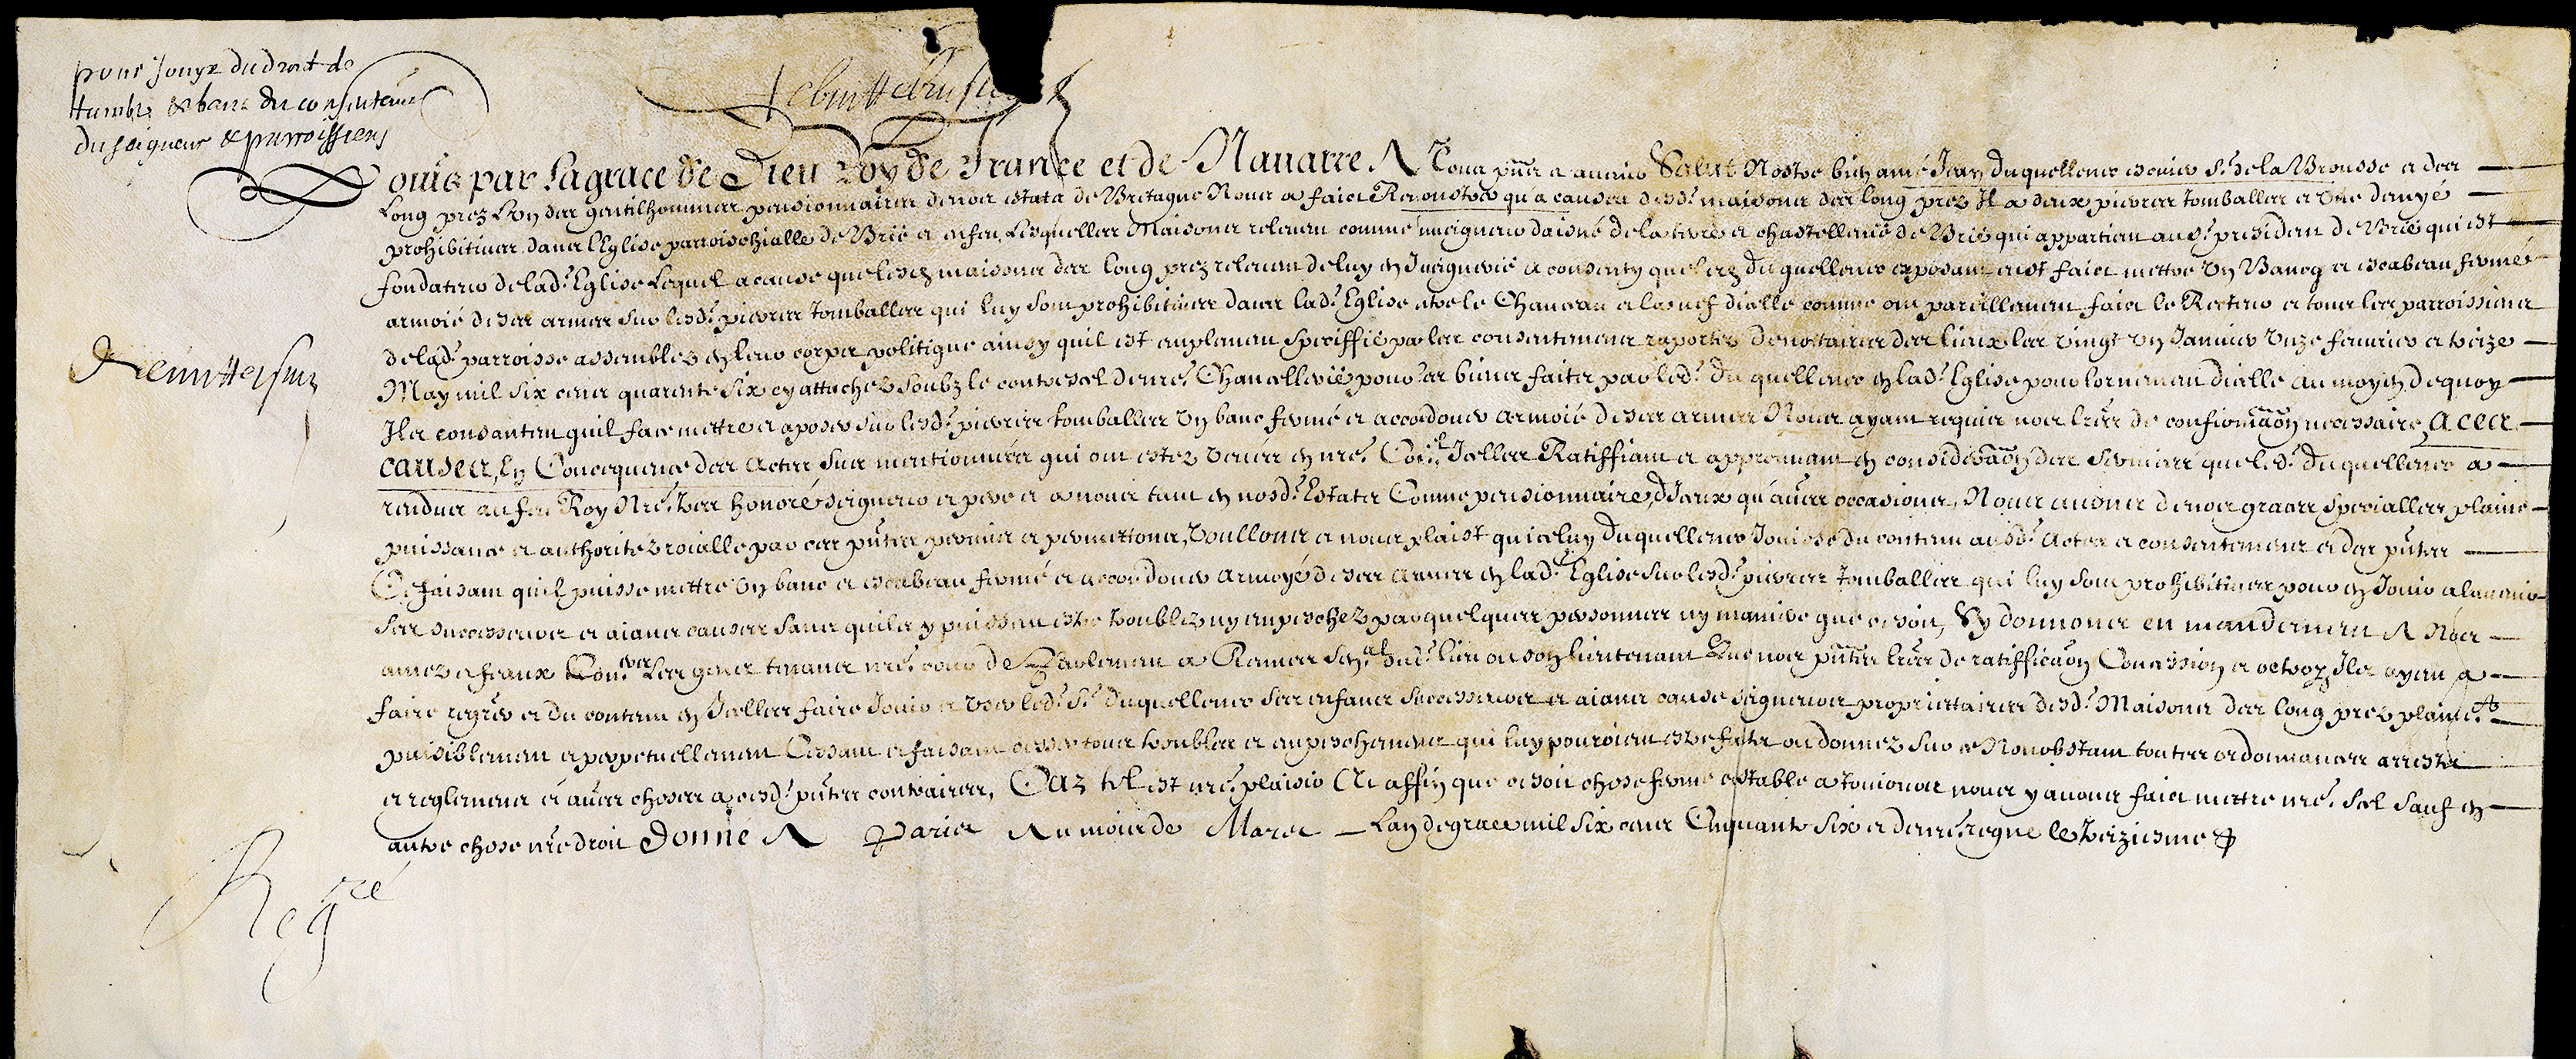 pour jouyr du droit de
tumbe & banc du consentemt
du seigneur & parroissiens
Louis par la grace de Dieu Roy de France et de Nauarre A Tous pñs et auenir Salut Nostre bien amé Jean du quellenec escuier sr. de la Brousse et des
Longs prez L'vn des gentilhommes pensionnaires de nos estats de Bretagne Nous a faict Remonstrer qu'a causes desd. maisons des longs prez Il a deux pierres tomballes et vne dans yé
prohibitiues dans l'Eglise parroischialle de Brie et enfeu, Lesquelles Maisons releuent comme Juueigneur daisné de la terre et chastellenie de Brie qui appartient au sr. president de Brie qui est
fondateur de lad. Eglise Lequel a cause que lesd. maisons des longs prez releuent de luy en Juuegnerie a consenty que led. du quellenec exposant eust faict mettre vn Bancq et escabeau fermé
armoié de ses armes sur lesd. pierres tomballes qui luy sont prohibitiues dans lad. Eglise entre le Chanceau et la nef d'icelle comme ont pareillement faict le Recteur et tous les parroissiens
de lad. parroisse assemblez en leur corps politique ainsy quil est amplement speciffié par les consentemens raportez de nottaires des lieux les vingt vn Januier vnze feurier et treize
May mil six cens quarente six cy attachez soubz le contresel de nre. Chancellerie pour les biens faits par led. du quellenec en lad. Eglise pour l'ornement d'icelle au moyen de quoy
Ils consentent quil face mettre et aposer sur lesd. pierres tomballes vn banc fermé et accordouer armoié de ses armes Nous ayant requis nos lres de confirmãon necessaires, A ces
causes, En Concequence des Actes sus mentionnées qui ont estez veües en nre. Coñel Icelles Ratiffiant et approuuant en considerãon des seruices que led. du quellenec a
rendus au feu Roy Nre. tres honoré seigneur et pere et a nous tant en nosd. Estats Comme pensionnaire, d'Iceux qu'autres occasions, Nous auons de nos graces specialles plaine
puissance et authoritez roialle par ces pñtes permis et permettons, Voullons et nous plaist qu'iceluy du quellenec Jouisse du contenu ausd. Actes et consentemens et des pñtes
Ce faisant quil puisse mettre vn banc et escabeau fermé et accordouer armoyé de ses armes en lad. Eglise sur lesd. pierres tomballes qui luy sont prohibitiues pour en Jouir a l'auenir
ses successeurs et aians causes sans quils y puissent estre troublez ny empeschez par quelques personnes ny maniere que ce soit, Sy donnons en mandement A Nos
amez et feaux Coners Les gens tenans nre. cour de Parlement a Rennes Senal dud. lieu ou son lieutenant Que nos pñtes lres de ratifficãon Concession et octroy, Ils ayent a
faire regrer et du contenu en Icelles faire Jouir et vser led. sr. du quellenec ses enfans successeurs et aians cause seigneurs proprietaires desd. Maisons des longs prez plainemt
paisiblement et perpetuellement Cessant et faisant cesser tous troubles et empeschemens qui luy pouroient estre faits ou donnez sur ce Nonobstant toutes ordonnances arrests
et reglemens et autres choses a cesd. pñtes contraires, Car tel est nre. plaisir Et affin que ce soit chose ferme et stable a tousiours nous y auons faict mettre nre. Sel Sauf en
autre chose nre droit Donné A Paris Au mois de Mars Lan de grace mil six cens Cinquante Six et de nre. regne le treiziesme
Regré